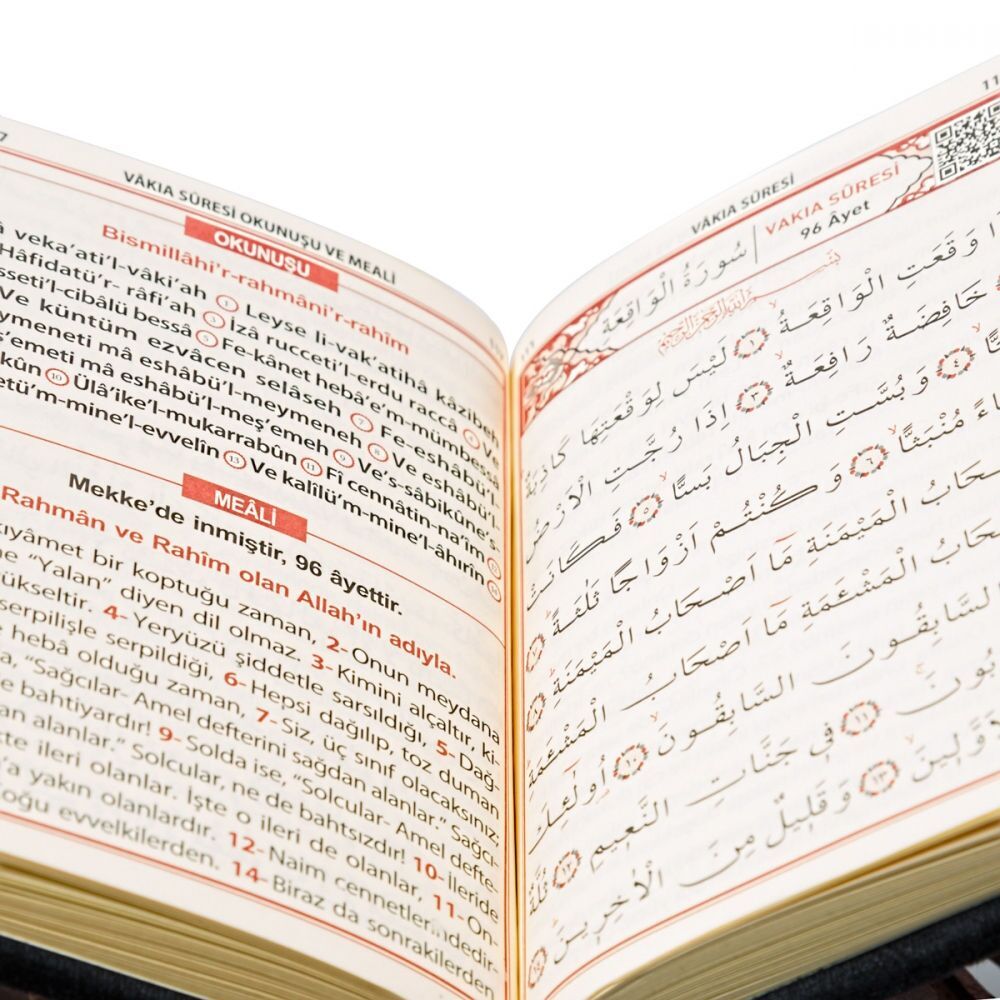 7
VÂKIA SÛRESİ OKUNUŞU VE MEALİ
OKUNUŞU
Bismillâhi'r-rahmâni'r-rahîm
veka'ati'l-vâki'ah 1 Leyse li-vak'atihâ kâzibeh
Hâfidatü'r- râfi'ah 3 İzâ rucceti'l-erdu raccâ 4 Ve
sseti'l-cibâlü bessâ 5 Fe-kânet hebâ'e'm-mümbessâ
Ve küntüm ezvâcen selâseh 7 Fe-eshâbü'l-
ymeneti mâ eshâbü'l-meymeneh 8 Ve eshâbü'l-
ş'emeti mâ eshâbü'l-meş'emeh 9 Ve's-sâbikûne's-
kûn 10 Ülâ'ike'l-mukarrabûn 11 Fî cennâtin-na'îm 12
etü'm-mine'l-evvelîn 13 Ve kalîlü'm-mine'l-âhırîn 14
MEÂLİ
Mekke'de inmiştir, 96 âyettir.
Rahmân ve Rahîm olan Allah'ın adıyla.
kıyâmet bir koptuğu zaman, 2- Onun meydana
ne "Yalan" diyen dil olmaz. 3- Kimini alçaltır, ki-
yükseltir. 4- Yeryüzü şiddetle sarsıldığı, 5- Dağ-
serpilişle serpildiği, 6- Hepsi dağılıp, toz duman
hebâ olduğu zaman, 7- Siz, üç sınıf olacaksınız;
a, "Sağcılar- Amel defterini sağdan alanlar." Sağcı-
e bahtiyardır! 9- Solda ise, "Solcular- Amel defte-
an alanlar." Solcular, ne de bahtsızdır! 10- İleride
te ileri olanlar. İşte o ileri de olanlar, 11- On-
'a yakın olanlardır. 12- Naim cennetlerindedir-
oğu evvelkilerden. 14- Biraz da sonrakilerden
11
VÂKIA SÛRESİ
سُورَةُ الْوَاقِعَةِ
VAKIA SÛRESİ
96 Âyet
بِسْمِ اللّٰهِ الرَّحْمٰنِ الرَّحِيمِ
وَقَعَتِ الْوَاقِعَةُ ١ لَيْسَ لِوَقْعَتِهَا كَاذِبَةٌ
خَافِضَةٌ رَافِعَةٌ ٣ اِذَا رُجَّتِ الْاَرْضُ
٤ وَبُسَّتِ الْجِبَالُ بَسًّا ٥ فَكَانَتْ
مُنْبَثًّا ٦ وَكُنْتُمْ اَزْوَاجًا ثَلٰثَةً ٧
حَابُ الْمَيْمَنَةِ مَٓا اَصْحَابُ الْمَيْمَنَةِ ٨
حَابُ الْمَشْـَٔمَةِ مَٓا اَصْحَابُ الْمَشْـَٔمَةِ
السَّابِقُونَ السَّابِقُونَ ١٠ اُولٰٓئِكَ
بُونَ ١١ فِي جَنَّاتِ النَّعِيمِ ١٢ ثُلَّةٌ
وَّلِينَ ١٣ وَقَلِيلٌ مِنَ الْاٰخِرِينَ ١٤